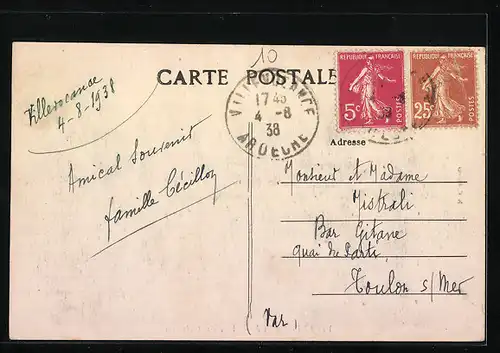 10
CARTE POSTALE
Villevocance
4-8-1938
VILLEVOCANCE
17 45
4 -8
38
ARDECHE
REPUBLIQUE FRANÇAISE
5c
POSTES
REPUBLIQUE FRANÇAISE
25c
POSTES
Adresse
Amical Souvenir
famille Cécillon
Monsieur et Madame
Mistrali
Bar Gitane
Quai du Parti
Toulon s/Mer
Var,